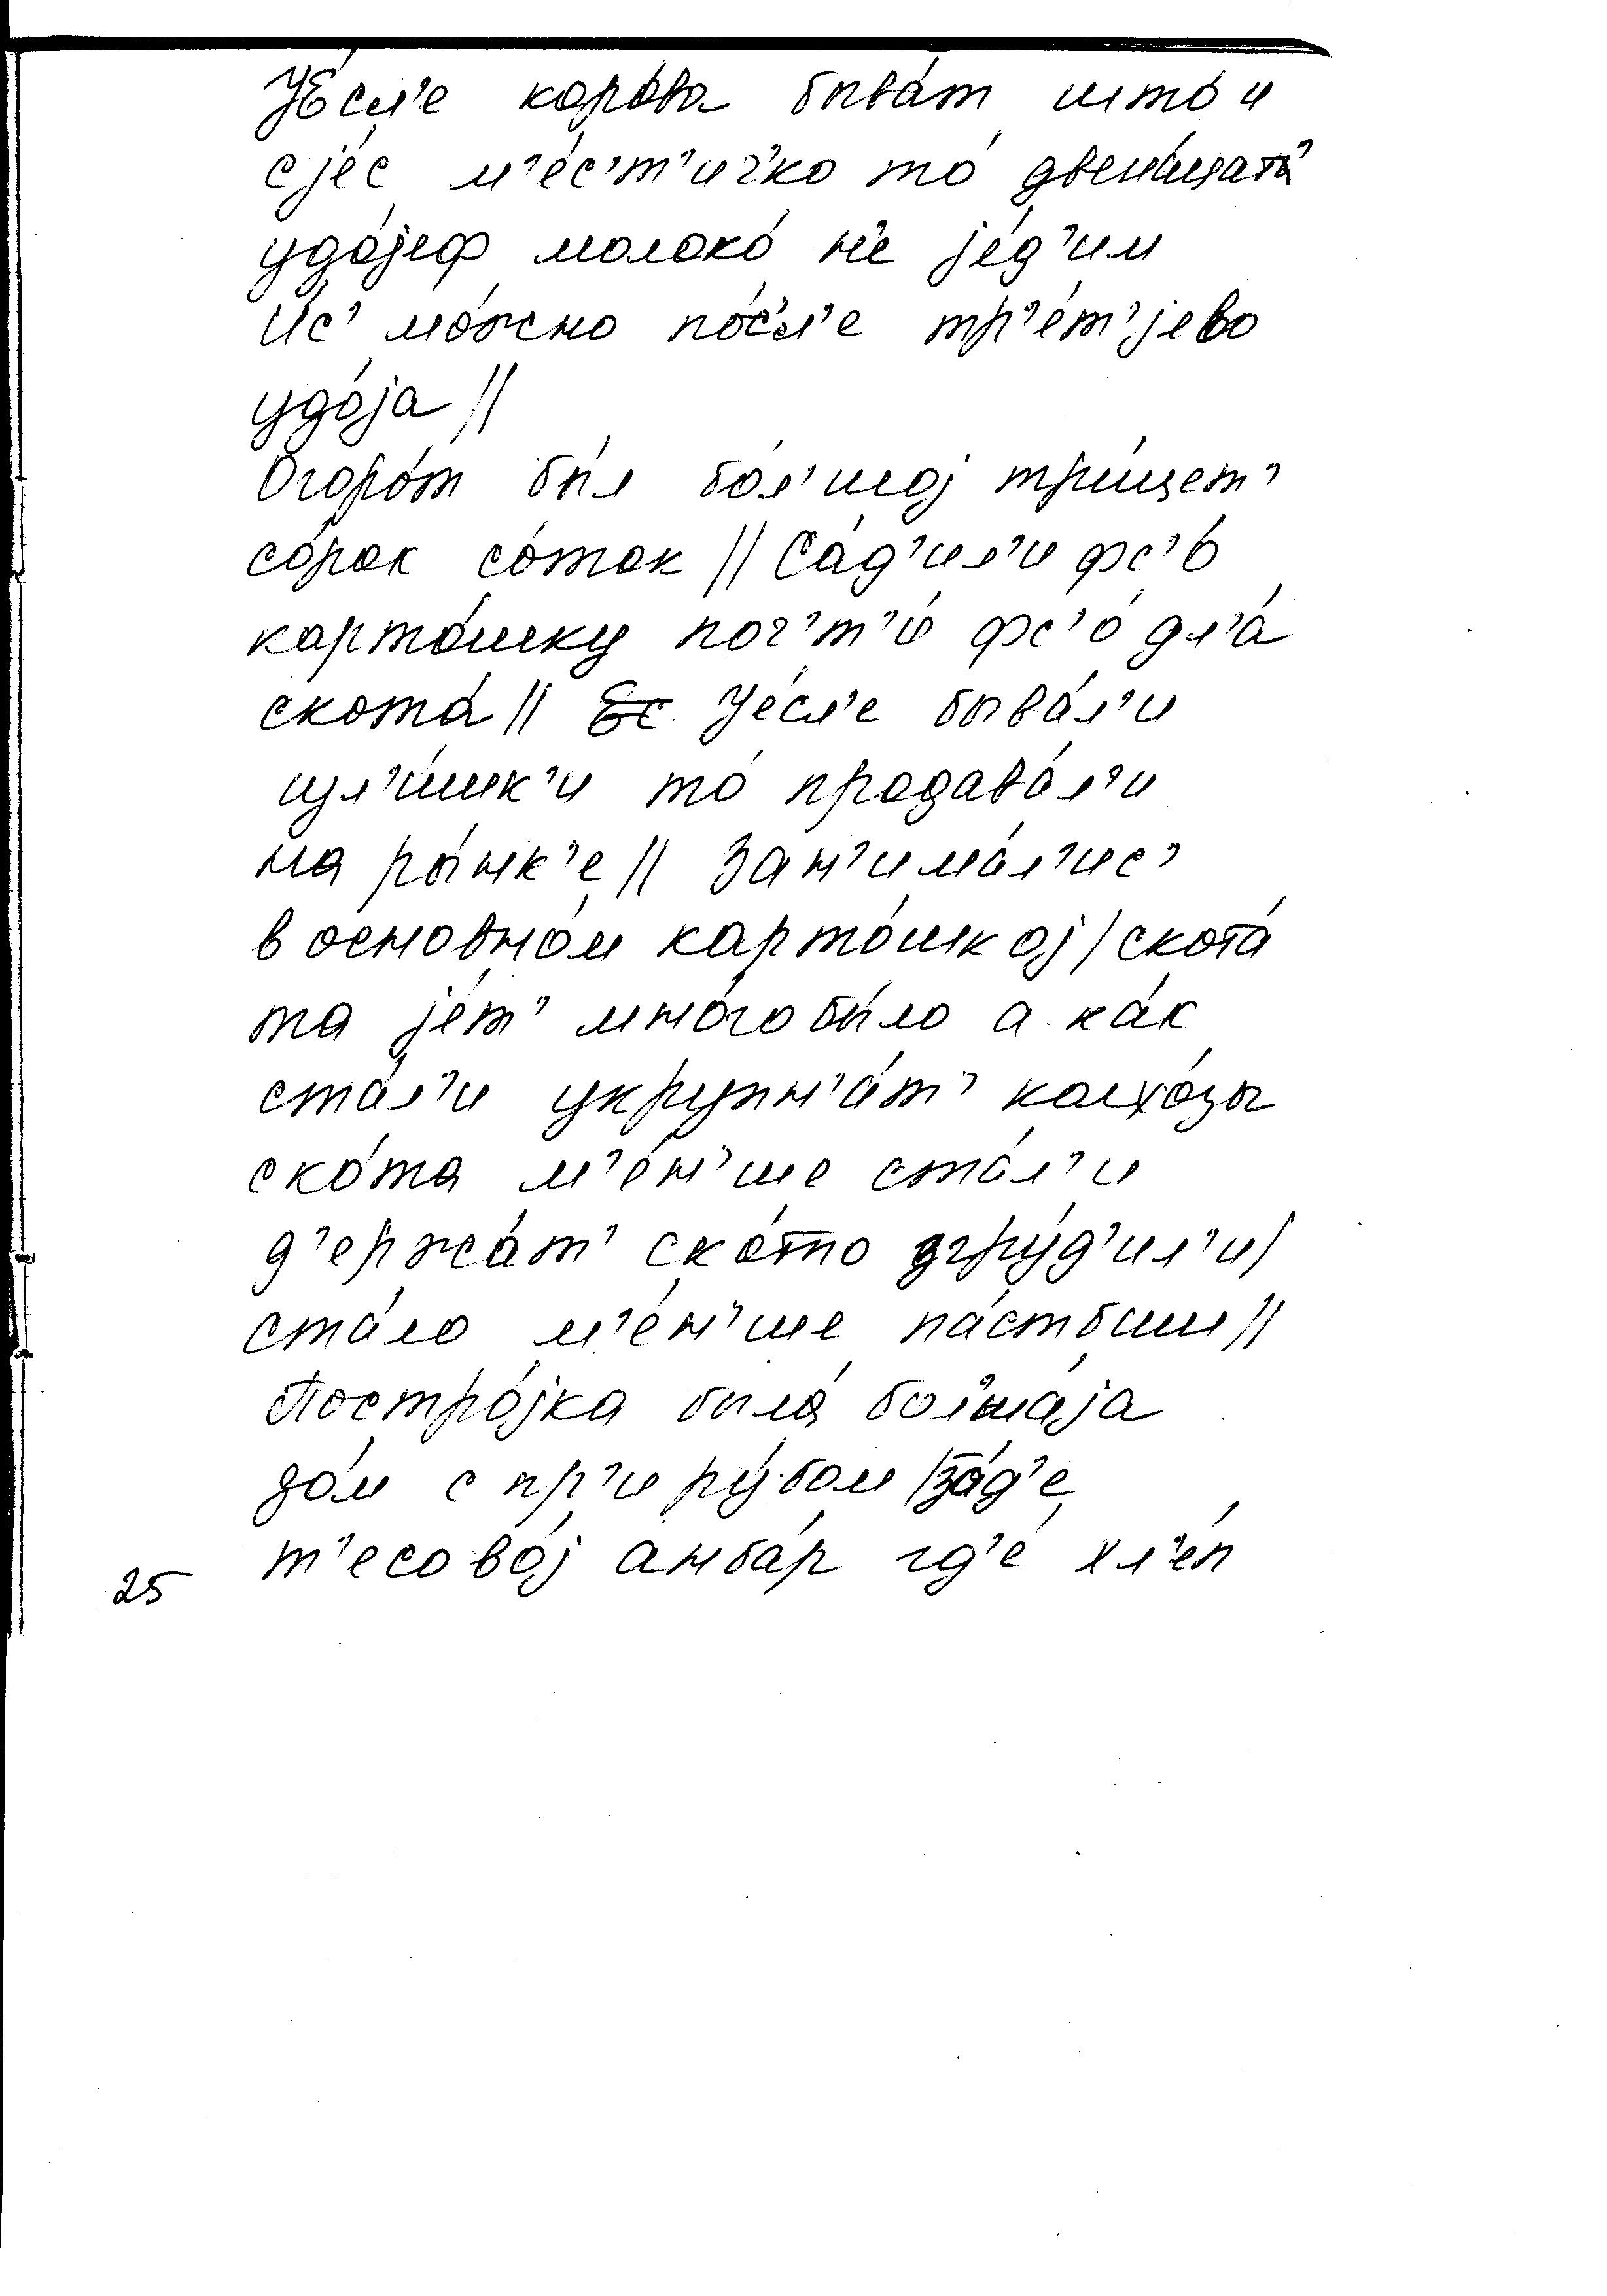 Jе́сл'е коро́ва быва́т што́ и
сjе́с м'е́с'т'ич'ко то́ двена́цат'
удо́jеф молоко́ н'е jе́д'им
Ис' мо́жно по́с'л'е тр'е́т'jево
удо́jа //
Огоро́т бы́л бол'шоj три́цет'
со́рок со́ток // Са́д'ил'и фс'о́
карто́шку поч'т'и́ фс'о́ дл'а́
скота́ // Ес. Jе́сл'е быва́л'и
изл'и́шк'и то́ продава́л'и
на ры́нк'е // Зан'има́л'ис'
в основно́м карто́шкоj / скота́
та jе́т' мно́го бы́ло а ка́к
ста́л'и укрупн'а́т' колхо́зы
ско́та м'е́н'ше ста́л'и
д'ержа́т' ско́тто згру́д'ил'и /
ста́ло м'е́н'ше па́стбиш //
Постро́jка была́ бол'ша́jа
до́м с пр'иру́бом / за́д'е
т'есово́j амба́р гд'е́ хл'е́п
25